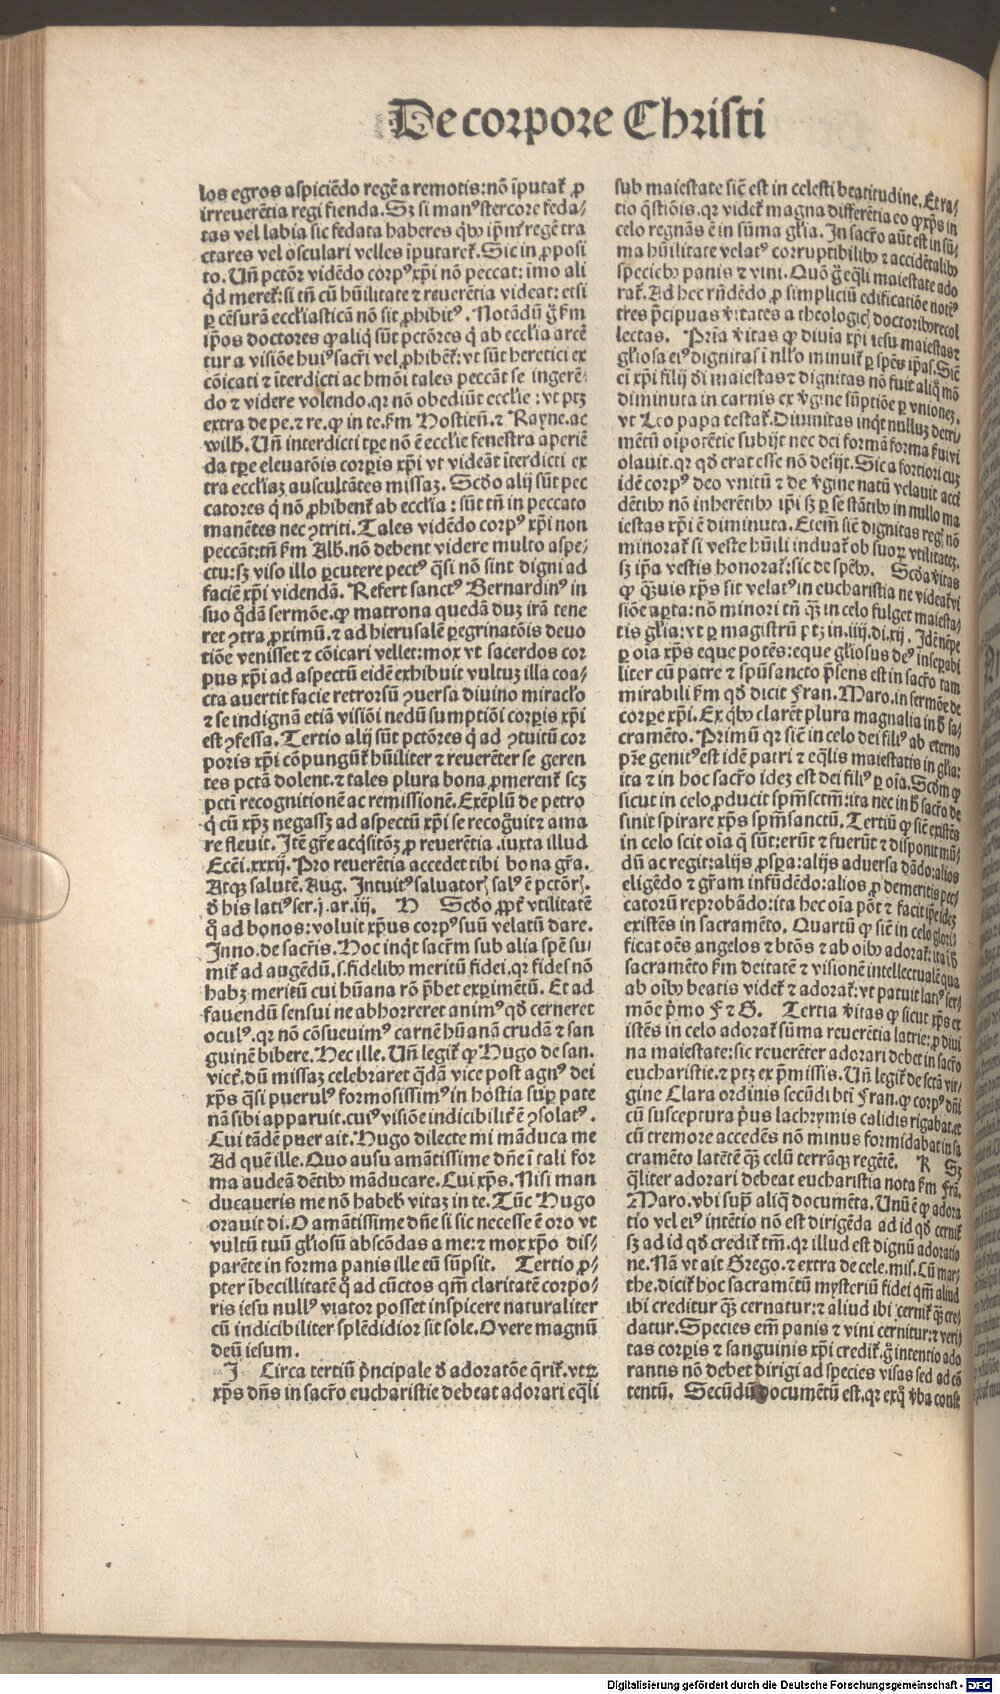 De corpore Christi
los egros aspiciẽdo regẽ a remotis: nõ ĩputat᷑ ꝓ
irreuerẽtia regi fienda. Sʒ si manꝰ stercore feda⸗
tas vel labia sic fedata haberes qͥbꝫ ip̃m regẽ tra
ctares vel osculari velles ĩputaret᷑. Sic in ꝓposi
to. Vñ pctõr vidẽdo corpꝰ xp̃i nõ peccat: imo ali
qͥd meret᷑: si tñ cũ hũilitate ⁊ reuerẽtia videat: etsi
ꝑ cẽsurã eccl̃iasticã nõ sit ꝓhibitꝰ. Notãdũ g̃ ẜm
ip̃os doctores ꝙ aliqͥ sũt pctõres qͥ ab ecclia arcẽ
tur a visiõe huiꝰ sacr̃i vel ꝓhibẽt᷑: vt sũt heretici ex
cõicati ⁊ ĩterdicti ac hmõi tales peccãt se ingerẽ⸗
do ⁊ videre volendo. qꝛ nõ obediũt ecclie: vt ptʒ
extra de pe. ⁊ re. ꝙ in te. ẜm Hostieñ. ⁊ Rayne. ac
wilh̃. Vñ interdicti tꝑe nõ ẽ eccl̃ie fenestra aperiẽ
da tꝑe eleuatõis corꝑis xp̃i vt videãt ĩterdicti ex
tra eccl̃iaʒ auscultãtes missaʒ. Scďo alij sũt pec
catores qͥ nõ ꝓhibent᷑ ab eccl̃ia: sũt tñ in peccato
manẽtes nec ꝯtriti. Tales vidẽdo corpꝰ xp̃i non
peccãt: tñ ẜm Alb̃. nõ debent videre multo aspe⸗
ctu: sʒ viso illo ꝑcutere pectꝰ q̃si nõ sint digni ad
faciẽ xp̃i videndã. Refert sanctꝰ Bernardinꝰ in
suo qͦdã sermõe. ꝙ matrona quedã duʒ irã tene
ret ꝯtra ꝓximũ. ⁊ ad hierusalẽ ꝑegrinatõis deuo
tiõe venisset ⁊ cõicari vellet: mox vt sacerdos cor
pus xp̃i ad aspectũ eidẽ exhibuit vultuʒ illa coa⸗
cta auertit facie retrorsũ ꝯuersa diuino miracl̃o
⁊ se indignã etiã visiõi nedũ sumptiõi corꝑis xp̃i
est ꝯfessa. Tertio alij sũt pctõres qͥ ad ꝯtuitũ cor
poris xp̃i cõpungũt᷑ hũiliter ⁊ reuerẽter se geren
tes pctã dolent. ⁊ tales plura bona ꝓmerent᷑ scʒ
pcti recognitionẽ ac remissionẽ. Exẽplũ de petro
qͥ cũ xp̃ʒ negassʒ ad aspectũ xp̃i se recog̃uit ⁊ ama
re fleuit. Itẽ gr̃e acq̃sitõʒ ꝓ reuerẽtia. iuxta illud
Ecẽi. xxxij. Pro reuerẽtia accedet tibi bona gr̃a.
Atqʒ salutẽ. Aug. Intuitꝰ saluatorꝭ salꝰ ẽ pctõrꝭ.
ď his latiꝰ ser. j. ar. iij. H Scďo ꝓpt᷑ vtilitatẽ
q̃ ad bonos: voluit xp̃us corpꝰ suũ velatũ dare.
Inno. de sacr̃is. Hoc inqͥt sacr̃m sub alia spẽ su⸗
mit᷑ ad augẽdũ. s. fidelibꝫ meritũ fidei. qꝛ fides nõ
habʒ meritũ cui hũana rõ p̃bet exꝑimẽtũ. Et ad
fauendũ sensui ne abhorreret animꝰ qď cerneret
oculꝰ. qꝛ nõ cõsueuimꝰ carnẽ hũanã crudã ⁊ san
guinẽ bibere. Hec ille. Vñ legit᷑ ꝙ Hugo de san.
vict᷑. dũ missaʒ celebraret qͣdã vice post agnꝰ dei
xp̃s q̃si puerulꝰ formosissimꝰ in hostia suꝑ pate
nã sibi apparuit. cuiꝰ visiõe indicibilit᷑ ẽ ꝯsolatꝰ.
Cui tãdẽ puer ait. Hugo dilecte mi mãduca me
Ad quẽ ille. Quo ausu amãtissime dñe ĩ tali for
ma audeã dẽtibꝫ mãducare. Cui xp̃s. Nisi man
ducaueris me nõ habebꝭ vitaʒ in te. Tũc Hugo
orauit di. O amãtissime dñe si sic necesse ẽ oro vt
vultũ tuũ gl̃iosũ abscõdas a me: ⁊ mox xp̃o dis⸗
parẽte in forma panis ille eũ sũpsit. Tertio ꝓ⸗
pter ĩbecillitatẽ qͦ ad cũctos qm̃ claritatẽ corpo⸗
ris iesu nullꝰ viator posset inspicere naturaliter
cũ indicibiliter splẽdidior sit sole. O vere magnũ
deũ iesum.
J Circa tertiũ p̃ncipale ď adoratõe q̃rit᷑. vtꝝ
xp̃s dñs in sacr̃o eucharistie debeat adorari eq̃li
sub maiestate sic̃ est in celesti beatitudine. Et ra⸗
tio q̃stiõis. qꝛ videt᷑ magna differẽtia eo ꝙ xp̃s in
celo regnãs ẽ in sũma gl̃ia. In sacr̃o aũt est in sũ⸗
ma hũilitate velatꝰ corruptibilibꝫ ⁊ accidẽtalibꝫ
speciebꝫ panis ⁊ vini. Quõ g̃ eq̃li maiestate ado
rat᷑. Ad hec rñdẽdo ꝓ simpliciũ edificatiõe notẽt᷑
tres p̃cipuas v̾itates a theologicꝭ doctoribꝫ recol
lectas. Prĩa v̾itas ꝙ diuia xp̃i iesu maiestas ⁊
gl̃iosa eiꝰ dignitas ĩ nll̃o minuit᷑ ꝑ spẽs ip̃as. Sic̃
ei xp̃i filij ďi maiestas ⁊ dignitas nõ fuit aliqͦ mõ
diminuta in carnis ex v̾gine sũptiõe ꝑ vnionẽ.
vt Leo papa testat᷑. Diuinitas inqͥt nulluʒ detri
mẽtũ oĩpotẽtie subijt nec dei formã forma ẜui vi
olauit. qꝛ qď erat esse nõ desijt. Sic a fortiori cuʒ
idẽ corpꝰ deo vnitũ ⁊ de v̾gine natũ velauit acci
dẽtibꝫ nõ inherẽtibꝫ ip̃i sʒ ꝑ se stãtibꝫ in nullo ma
iestas xp̃i ẽ diminuta. Etem̃ sic̃ dignitas regꝭ nõ
minorat᷑ si veste hũili induat᷑ ob suoꝝ vtilitatẽ.
sʒ ip̃a vestis honorat᷑: sic de spẽbꝫ. Scďa v̾itas
ꝙ q̃ʒuis xp̃s sit velatꝰ in eucharistia ne videat᷑ vi
siõe aꝑta: nõ minori tñ q̃ʒ in celo fulget maiesta⸗
tis gl̃ia: vt ꝑ magistrũ ptʒ in. iiij. di. xij. Idẽ nẽpe
ꝑ oĩa xp̃s eque potẽs: eque gl̃iosus deꝰ inseꝑabi
liter cũ patre ⁊ spũsancto p̃sens est in sacr̃o tam
mirabili ẜm qď dicit Fran. Maro. in sermõe de
corꝑe xp̃i. Ex qͥbꝫ clarẽt plura magnalia in h̃ sa⸗
cramẽto. Primũ qꝛ sic̃ in celo dei filiꝰ ab eterno
pr̃e genitꝰ est idẽ patri ⁊ eq̃lis maiestatis in gl̃ia:
ita ⁊ in hoc sacr̃o ideʒ est dei filiꝰ ꝑ oĩa. Scďm ꝙ
sicut in celo ꝓducit spm̃sctm̃: ita nec in h̃ sacr̃o de
sinit spirare xp̃s spm̃sanctũ. Tertiũ ꝙ sic̃ existẽs
in celo scit oĩa q̃ sũt: erũt ⁊ fuerũt ⁊ disponit mũ⸗
dũ ac regit: alijs ꝓsꝑa: alijs aduersa dãdo: alios
eligẽdo ⁊ gr̃am infũdẽdo: alios ꝓ demeritis pec⸗
catorũ reprobãdo: ita hec oĩa põt ⁊ facit ip̃e ideʒ
existẽs in sacramẽto. Quartũ ꝙ sic̃ in celo glori⸗
ficat oẽs angelos ⁊ btõs ⁊ ab oĩbꝫ adorat᷑: ita ĩ h̃
sacramẽto ẜm deitatẽ ⁊ visionẽ intellectualẽ qua
ab oĩbꝫ beatis videt᷑ ⁊ adorat᷑: vt patuit latiꝰ ser⸗
mõe p̃mo F ⁊ G. Tertia v̾itas ꝙ sicut xp̃s ex
istẽs in celo adorat᷑ sũma reuerẽtia latrie: ꝓ diui
na maiestate: sic reuerẽter adorari debet in sacr̃o
eucharistie. ⁊ ptʒ ex p̃missis. Vñ legit᷑ de sctã vir⸗
gine Clara ordinis secũdi bti Fran. ꝙ corpꝰ dñi
cũ susceptura p̾us lachrymis calidis rigabat. et
cũ tremore accedẽs nõ minus formidabat in sa
cramẽto latẽtẽ q̃ʒ celũ terrãqʒ regẽtẽ. K Sʒ
q̃liter adorari debeat eucharistia nota ẜm Frã.
Maro. vbi supͣ aliqͣ documẽta. Vnũ ẽ ꝙ adora
tio vel eiꝰ intẽtio nõ est dirigẽda ad id qď cernit᷑
sʒ ad id qď credit᷑ tm̃. qꝛ illud est dignũ adoratio
ne. Nã vt ait Grego. ⁊ extra de cele. mis. Cũ mar⸗
the. dicit᷑ hoc sacramẽtũ mysteriũ fidei qm̃ aliud
ibi creditur q̃ʒ cernatur: ⁊ aliud ibi cernit᷑ q̃ʒ cre⸗
datur. Species em̃ panis ⁊ vini cernitur: ⁊ veri⸗
tas corꝑis ⁊ sanguinis xp̃i credit᷑. g̃ intentio ado
rantis nõ debet dirigi ad species visas sed ad cõ
tentũ. Secũdũ documẽtũ est. qꝛ ex q̃ v̾ba conse
Digitalisierung gefördert durch die Deutsche Forschungsgemeinschaft - DFG